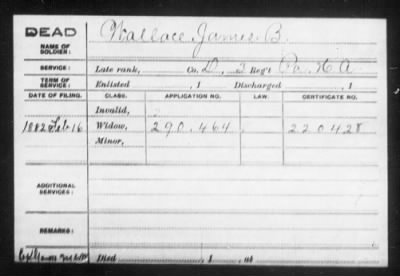 DEAD
NAME OF SOLDIER: Wallace, James B.
SERVICE: Late rank, Co. D, 3 Reg't Pa. H A
TERM OF SERVICE: Enlisted , 1 Discharged , 1
DATE OF FILING. CLASS. APPLICATION NO. LAW. CERTIFICATE NO.
Invalid,
1882 Feb 16 Widow, 290.464 220428
Minor,
ADDITIONAL SERVICES:
REMARKS:
Died , 1 , at